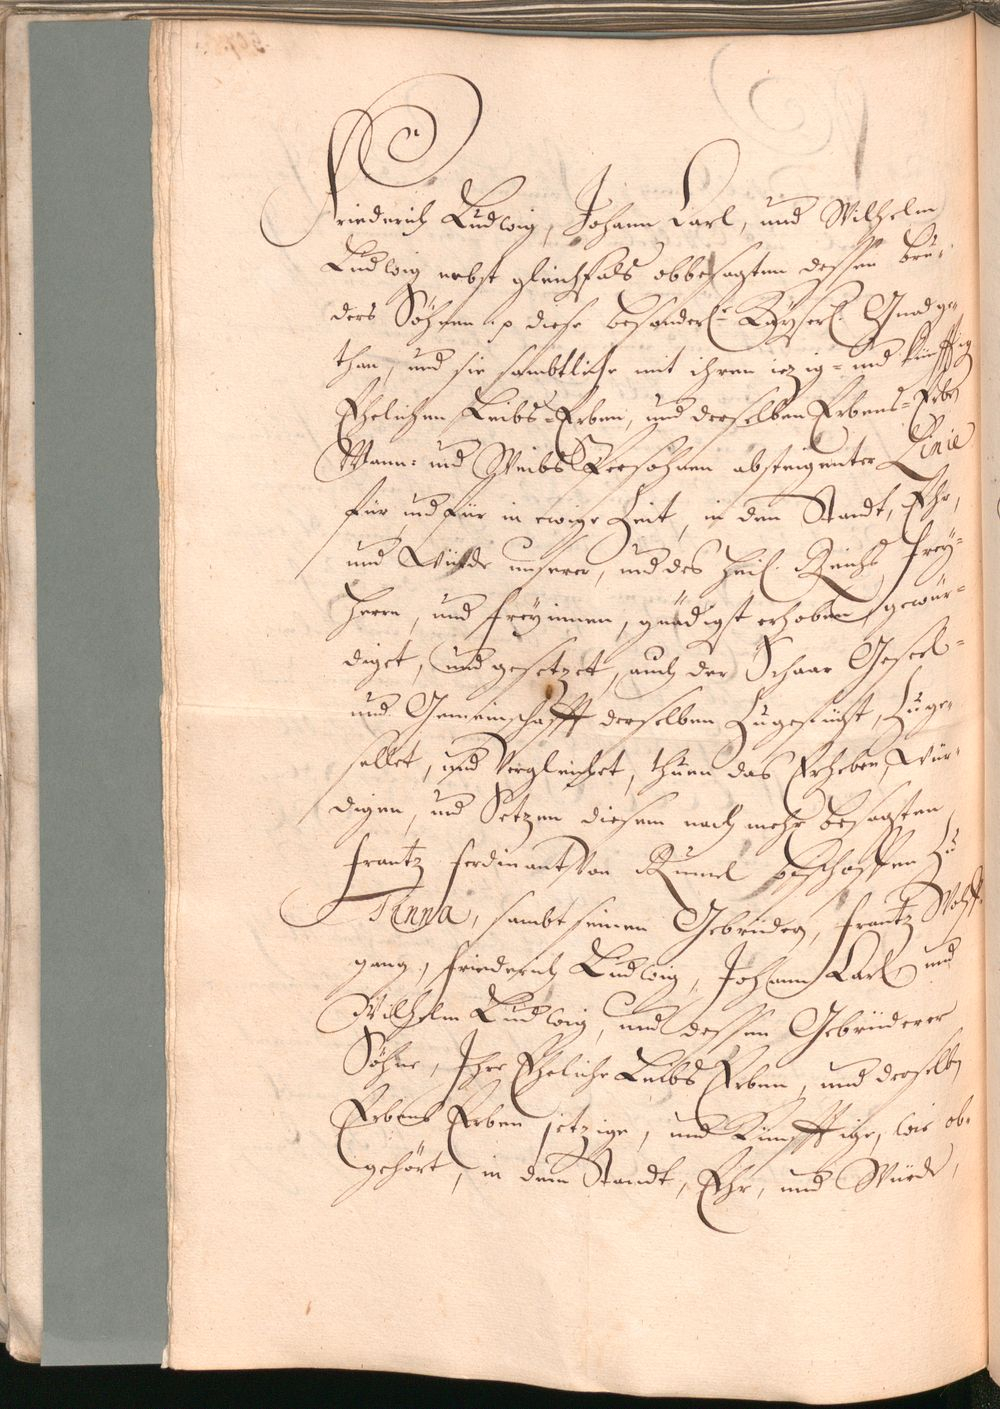 Friederich Ludwig, Johann Carl, und Wilhelm
Ludwig nebst gleichfals obbesagten dessen brü-
ders Söhnen p diese besonderl. Kayserl. Gnad ge-
than, und sie sambtliche mit ihren iezig- und künfftig
Ehelichen Leibs-Erben, und derselben Erbens-Erben
Mann- und Weibs Persohnen absteigenter Linie
für und für in ewige Zeit, in den Standt, Ehr,
und Würde unserer, und des Heil. Reichs frey-
herrn, und freyinnen, gnädigst erhoben, gewür-
diget, und gesetzet, auch der Schaar Gesell-
und Gemeinschafft derselben Zugefücht, Zuge-
sellet, und Vergleichet, thuen das Erheben, Wür-
digen, und Setzen diesem nach mehr besagten
frantz ferdinant Von Rumel zu
Tinna, sambt seinen Gebrüdern, frantz Wolff-
gang, friederich Ludwig, Johann Carl und
Wilhelm Ludwig, und dessen Gebrüderer
Söhne, Ihre Eheliche Leibs Erben, und derselben
Erbens Erben jetzige, und Künfftige, wie ob-
gehört, in dem Standt, Ehr, und Würde,